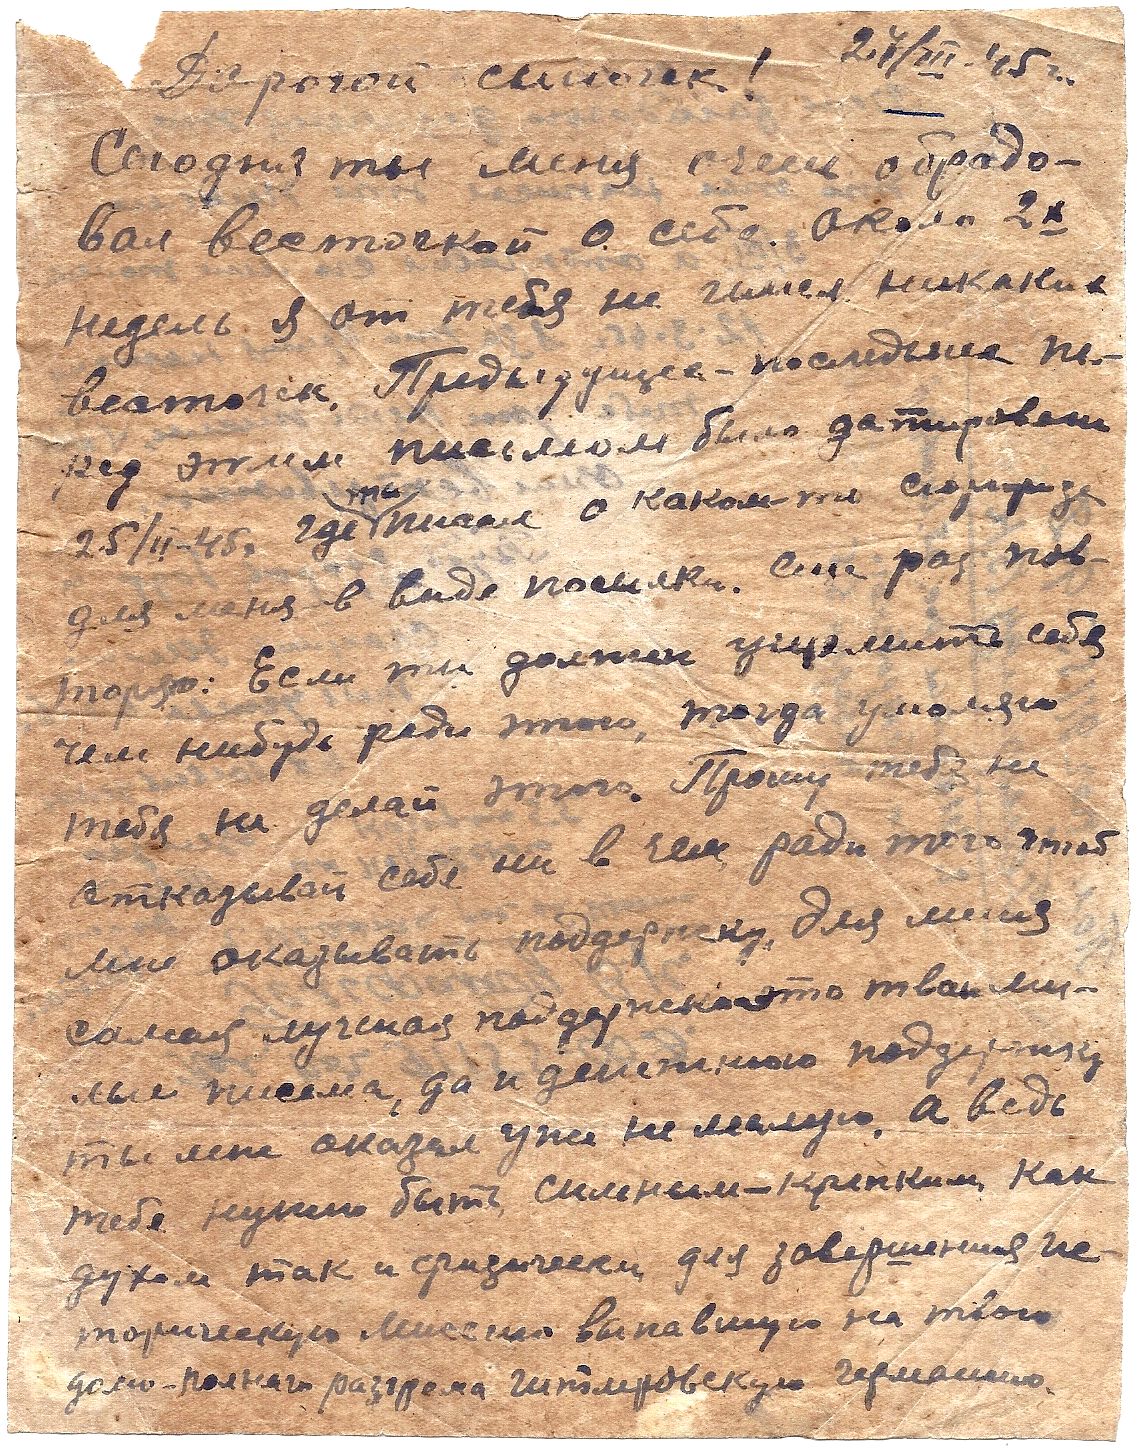 27/III-45 г.
Дорогой сыночек!
Сегодня ты меня очень обрадо-
вал весточкой о себе. Около 2х
недель я от тебя не имел никаких
весточек. Предыдущее-последнее пе-
ред этим письмом было датировано
25/II-45г где ты писал о каком-то сюрпризе
для меня в виде посылки. Еще раз пов-
торяю: Если ты должен ущемить себя
чем нибудь ради этого, тогда умоляю
тебя не делай этого. Прошу тебя не
отказывай себе ни в чем, ради того чтоб
мне оказывать поддержку. Для меня
самая лучшая поддержка это твои ми-
лые письма, да и денежную поддержку
ты мне оказал уже не малую. А ведь
тебе нужно быть сильным-крепким, как
духом так и физически для завершения ис-
торическую миссию выпавшую на твою
долю-полного разгрома гитлеровскую германию.